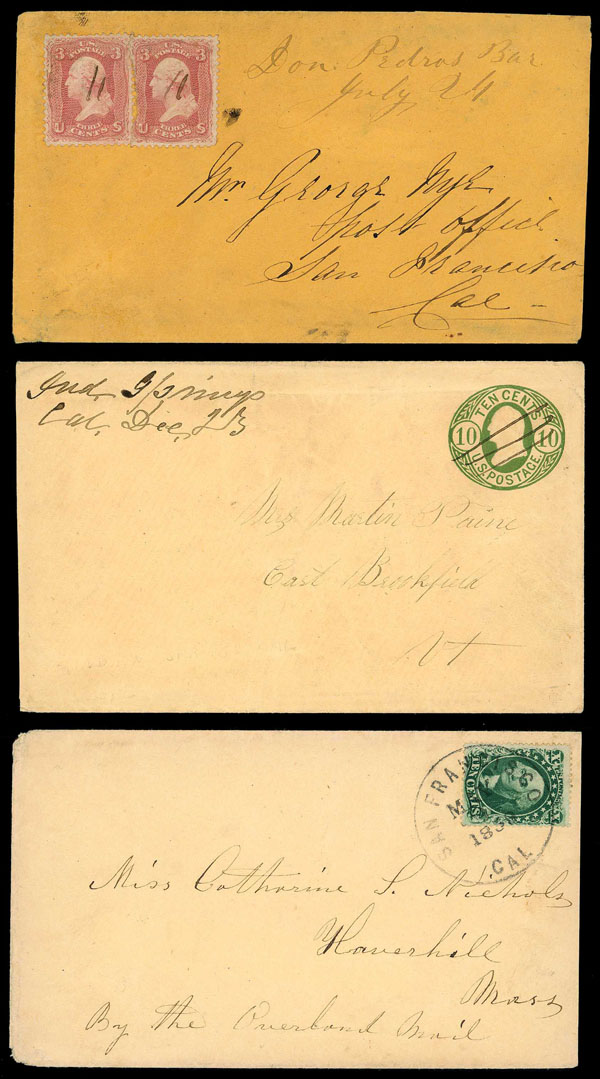 3 U.S. POSTAGE 3
U THREE CENTS S
3 U.S. POSTAGE 3
U THREE CENTS S
Don Pedros Bar
July 24
Mr. George Nye
post office
San Francisco
Cal
Ind. Springs
Cal. Dec. 23
TEN CENTS
10 10
U.S. POSTAGE.
Mrs Martin Paine
East Brookfield
Vt
SAN FRAN O
CAL
X U.S. POSTAGE X
TEN CENTS
Miss Catharine S. Nichols
Haverhill
Mass
By the Overland Mail